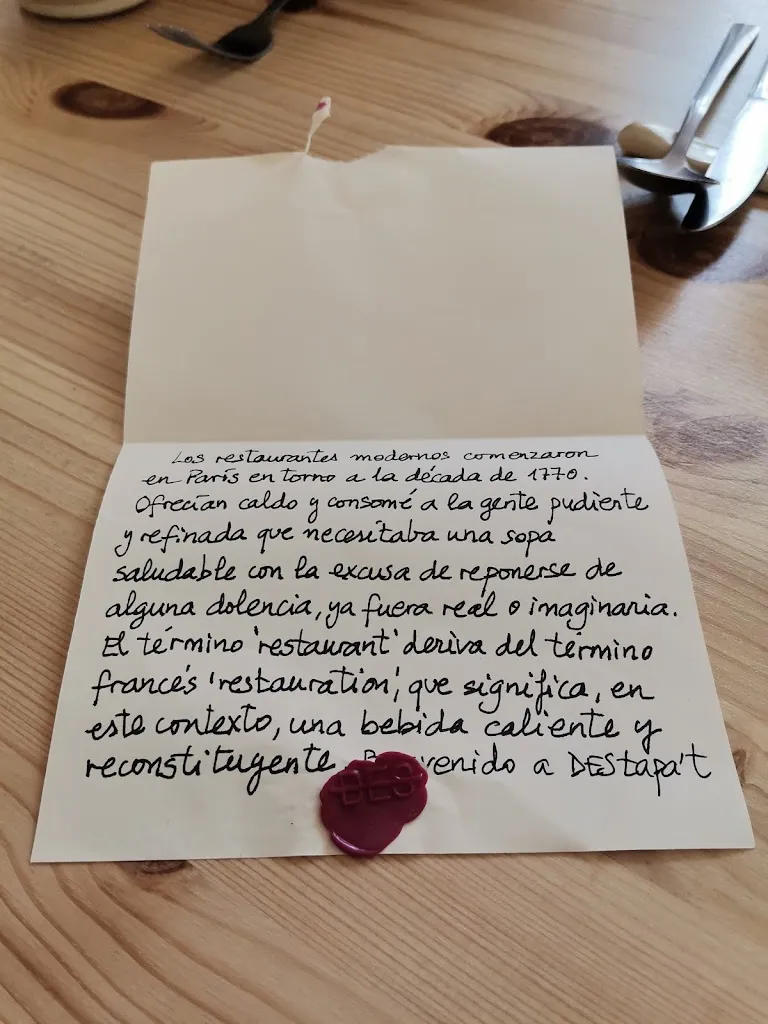 Los restaurantes modernos comenzaron
en París en torno a la década de 1770.
Ofrecían caldo y consomé a la gente pudiente
y refinada que necesitaba una sopa
saludable con la excusa de reponerse de
alguna dolencia, ya fuera real o imaginaria.
El término 'restaurant' deriva del término
francés 'restauration', que significa, en
este contexto, una bebida caliente y
reconstituyente. venido a DEStapa't
DES